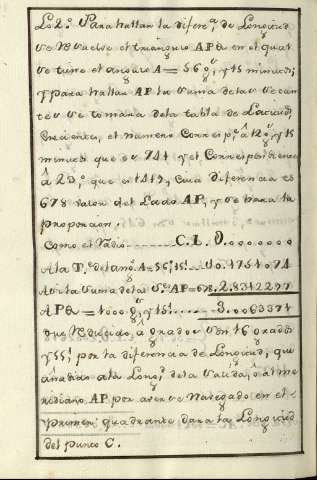 Lo 2.º Para hallar la difer.ª de Longitud
se Resuelve el triangulo APa en el qual
se tiene el angulo A = 56 g.s y 15 minutos;
y para hallar AP la suma delas secan
tes se tomara dela tabla de Latitud,
Creciente, el numero Corresp.te â 12 g.s y 15
minutos que es 741 y el Correspondiente
â 23.º que es 1419, cuia diferencia es
678 valor del Lado AP, y se hara la
proporcion.
Como el Radio C. L. 0.0000000
A la T.e del ang.º A = 56.º 15.' 10.1751074
Asi la suma de las S.es AP = 678. 2.8312297
a 3.0063371
que Reducidos â grados son 16 grados
y 55' por la diferencia de Longitud, que
añadidos ala Long.d dela salida, ô al me
ridiano AP, por averse Navegado en el
primer quadrante dara la Longitud
del punto C.